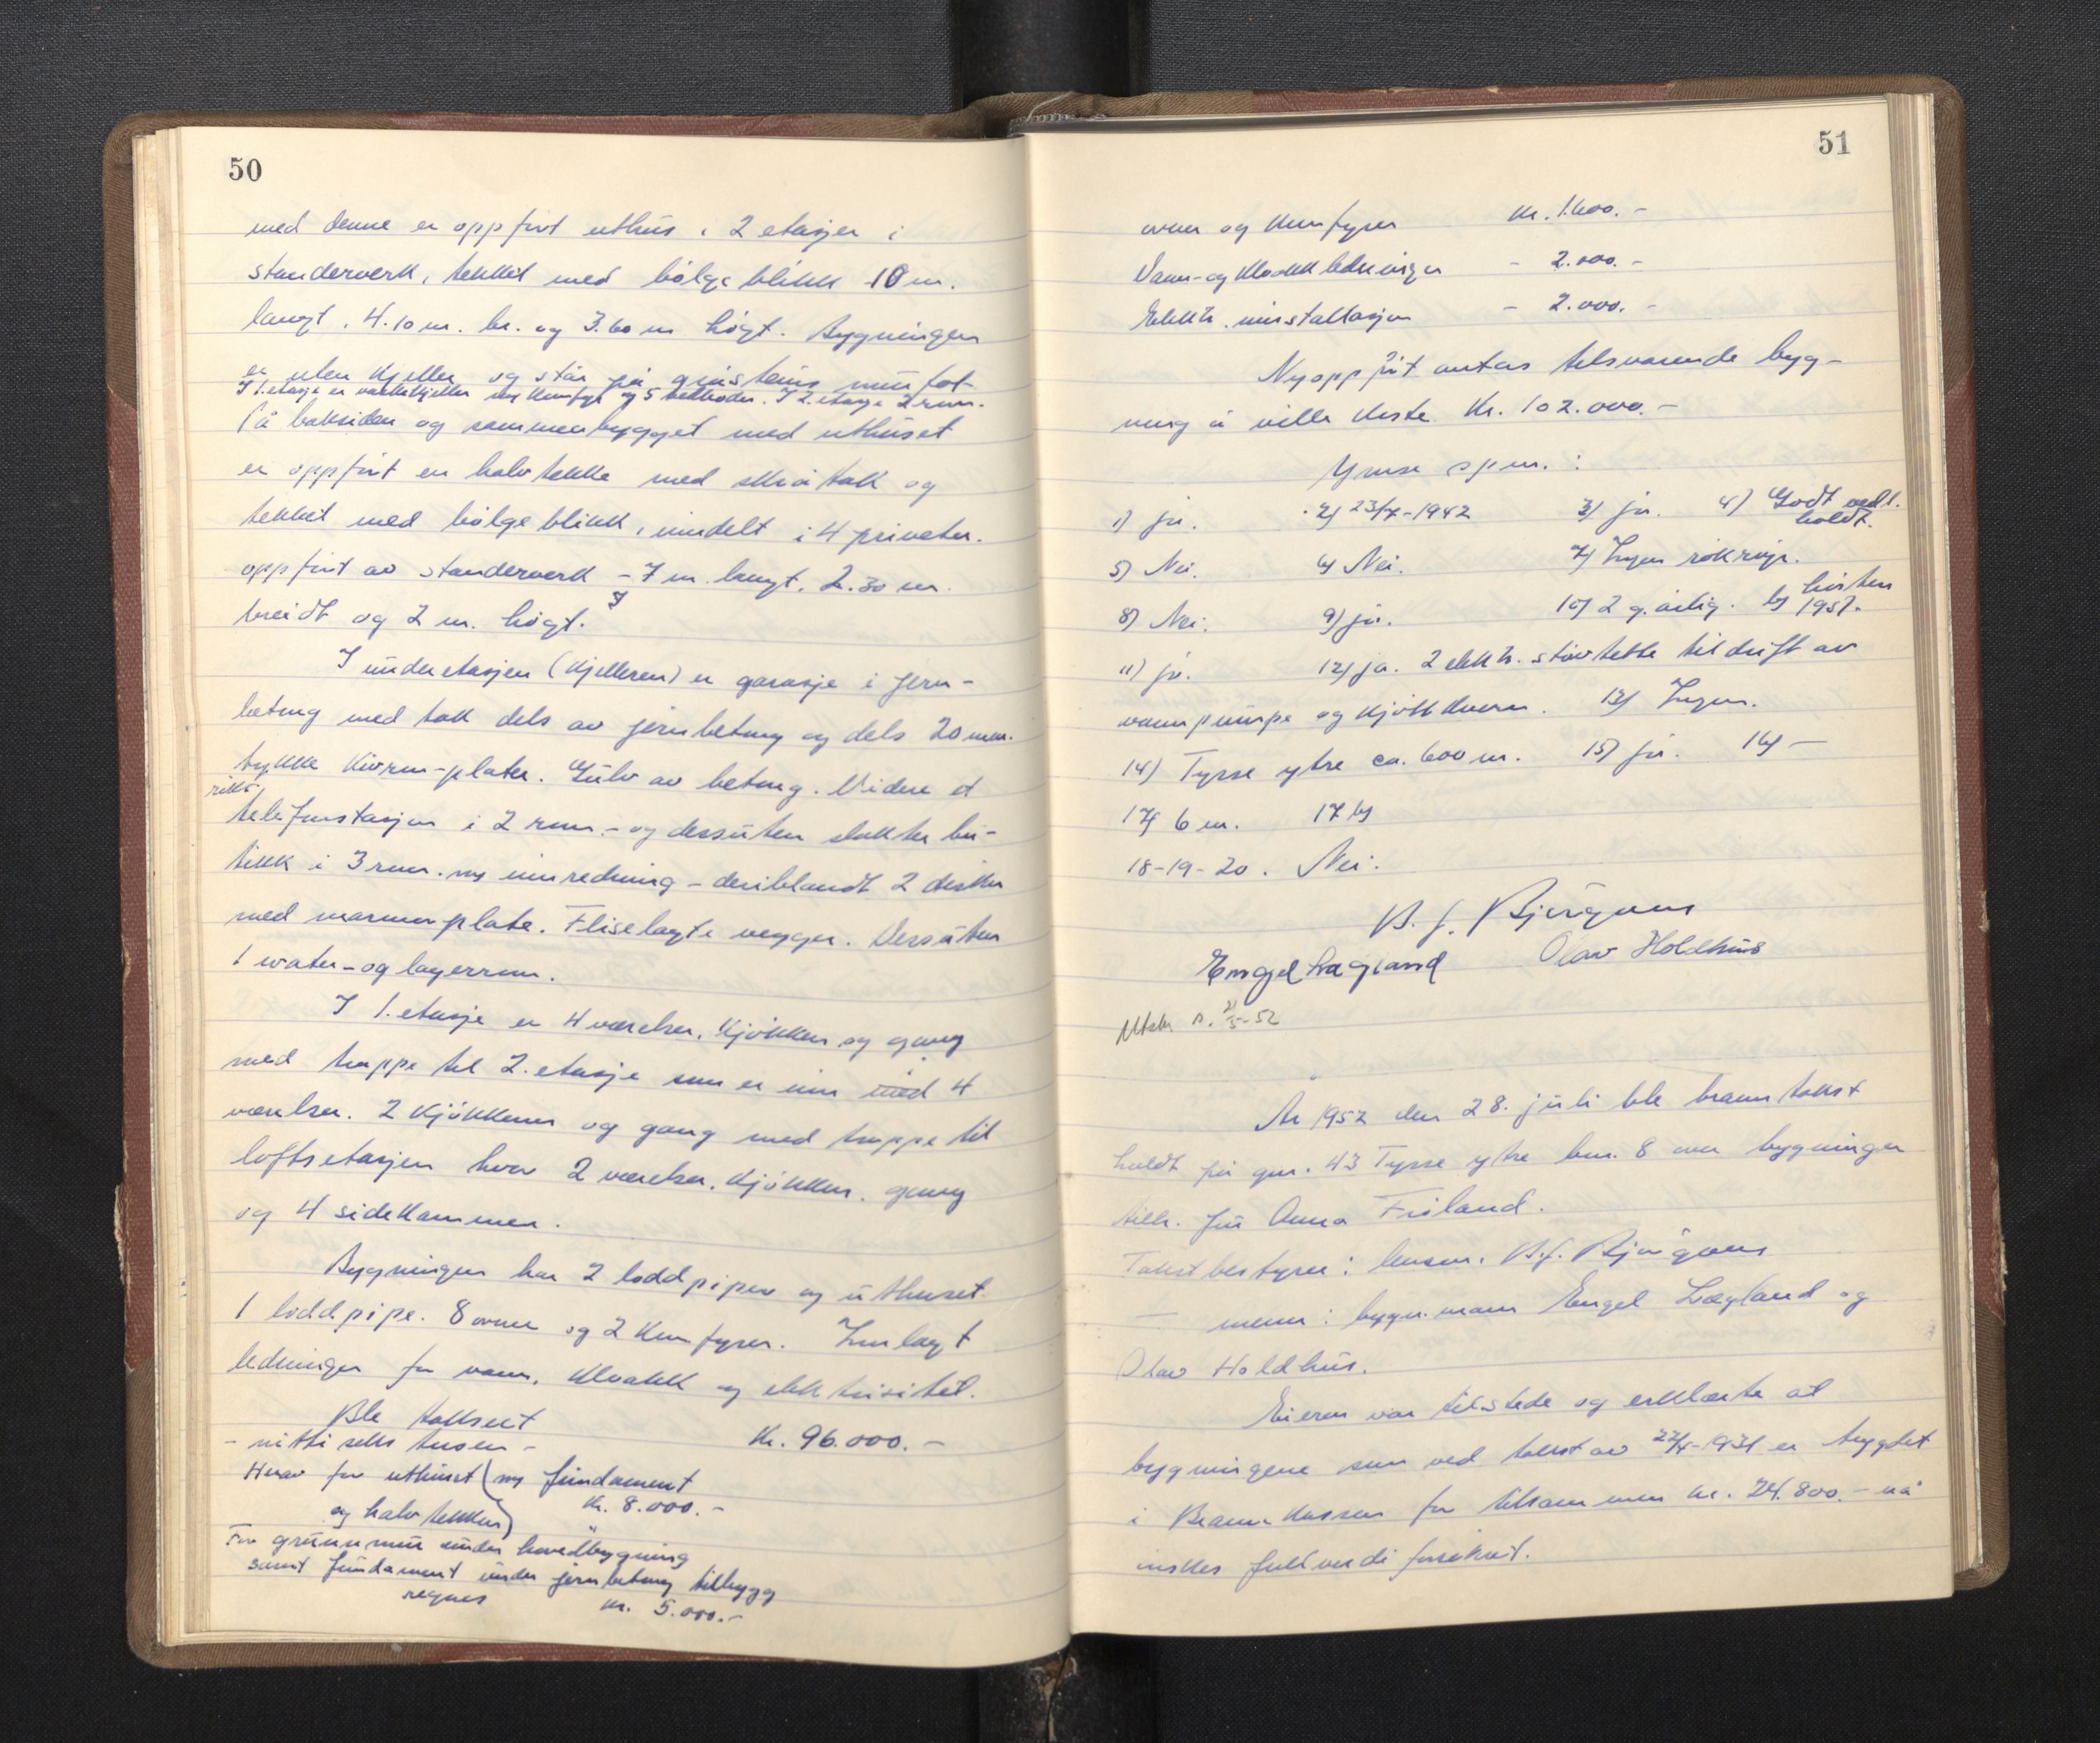 50
med denne er oppført uthus i 2 etasjer i
standerverk, tekket med bølgeblikk 10 m.
langt, 4.10 m. br. og 3.60 m høgt. Bygningen
er uten kjeller og står på gråsteins mur tot
I 1. etasje er vaskekjeller og 5 I 2. etasje 2 rum.
På baksiden og sammenbygget med uthuset
er oppført en halvtekke med skrå tak og
tekket med bølgeblikk, inndelt i 4 privater.
oppført av standerverk - 7 m. langt, 2.30 m.
breidt og 2 m. høgt.
I underetasjen (kjelleren) er garasje i jern-
betong med tak dels av jernbetong og dels 20 mm.
tykke plater. Gulv av betong. Videre et
riks
telefonstasjon i 2 rum - og dessuten slakter bu-
tikk i 3 rum. ny innredning - deriblandt 2 disker
med marmorplate. Fliselagte vegger. Dessuten
1 water- og lagerrum.
I 1. etasje er 4 værelser, kjøkken og gang
med trappe til 2. etasje som er inn med 4
værelser. 2 kjøkkener og gang med trappe til
loftsetasjen hvor 2 værelser, kjøkken, gang
og 4 sidekammer.
Bygningen har 2 loddpiper og uthuset
1 loddpipe. 8 ovner og 2 komfyrer. Innlagt
ledninger for vann, kloakk og elektrisitet.
Ble taksert
- nitti seks tusen - Kr. 96.000.-
Herav for uthuset (og fundament
og halvtekken) kr. 8.000.-
For grunnmur under hovedbygning
samt fundament under jernbetong tilbygg
regnes kr. 5.000.-
51
ovner og komfyrer kr. 1.600.-
Vann- og kloakkledninger - 2.000.-
Elektr. innstallasjon - 2.000.-
Nyoppført antas tilsvarende byg-
ning å ville koste kr. 102.000.-
Ymse spm. :
1) ja. 2) 23/7-1942 3) ja. 4) Godt vedl.
holdt.
5) Nei. 6) Nei. 7) Ingen
8) Nei. 9) ja. 10) 2 g. årlig. b) høsten
1951.
11) ja. 12) ja. 2 elektr. støvtette til drift av
vannpumpe og kjøttkvern. 13) Ingen.
14) Tysse ytre ca. 600 m. 15) ja. 16) -
17) 6 m. 17 b)
18-19-20. Nei.
B. J. Bjørgvens
Engel Lægland Olav Holdhus
Utskr. s. 21/5-52
År 1952 den 28. juli ble branntakst
holdt på gnr. 43 Tysse ytre bnr. 8 over bygninger
tilh. fru Anna Frøland.
Takstbestyrer: lensm. B. J. Bjørgvens
— menn: bygn.mann Engel Lægland og
Olav Holdhus.
Eieren var tilstede og erklærte at
bygningene som ved takst av 22/4-1931 er trygdet
i Brannkassen for tilsammen kr. 24.800.- nå
ønskes fullverdiforsikret.